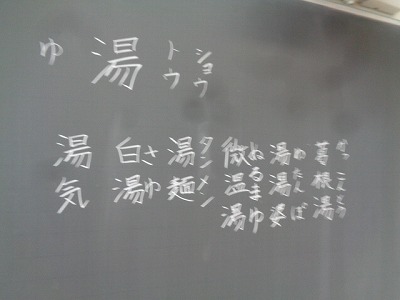 ゆ 湯 トウ ショウ
葛根湯 かっこんとう
湯湯婆 ゆたんぽ
微温湯 ぬるまゆ
湯麺 タンメン
白湯 さゆ
湯気